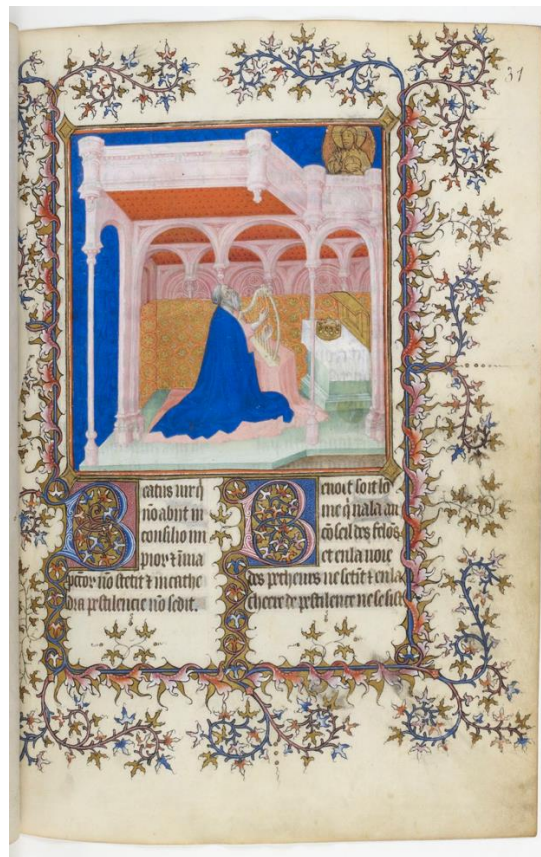 31
Beatus vir q̄
nō abiit in
consilio im
pior⁊ ⁊ in via
pctor nō stetit ⁊ in cathe
dra pestilencie nō sedit.
Benoit soit lo
me q̄ nala au
cōseil des felōs
et en la voie
des pecheurs ne setut ⁊ en la
chaere de pestilence ne se sist